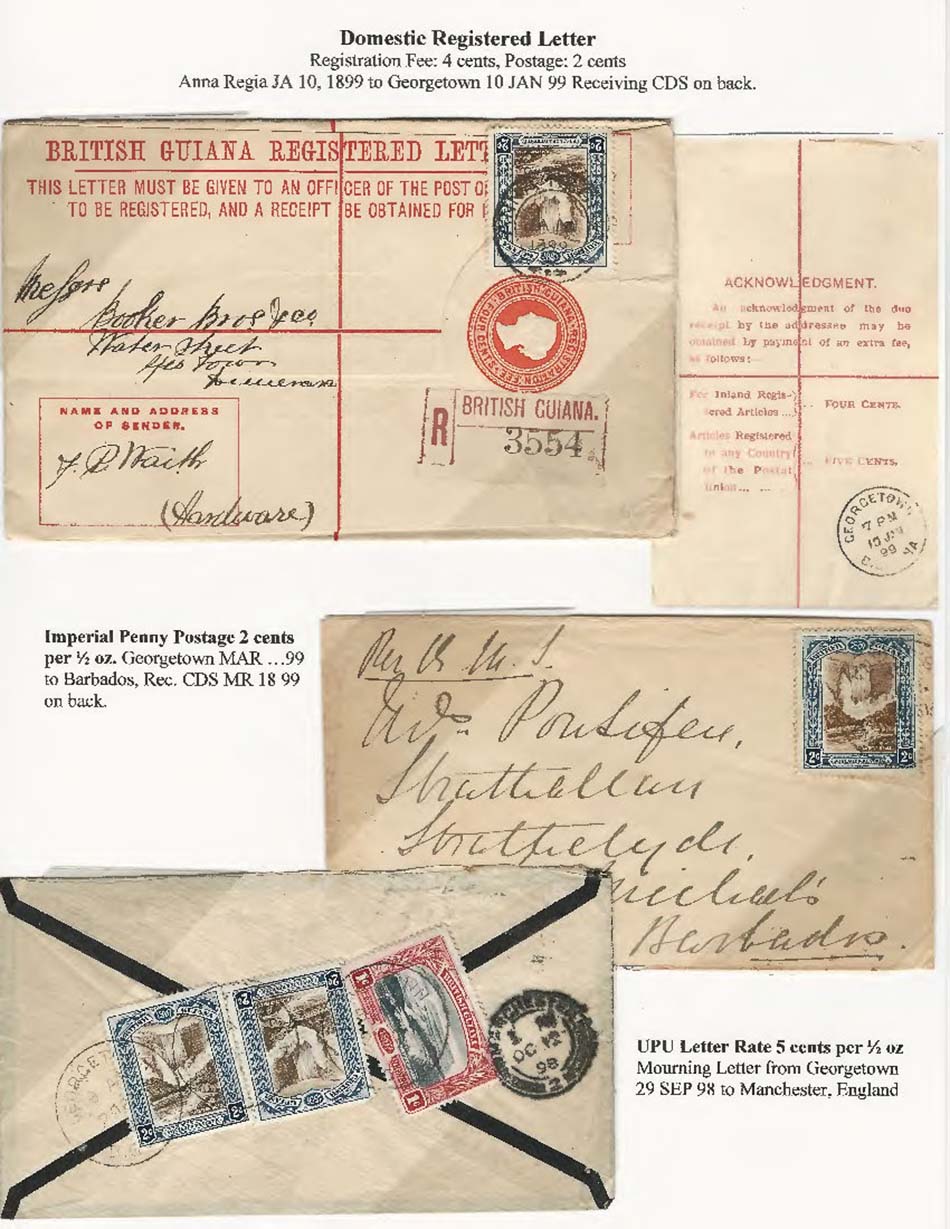 Domestic Registered Letter
Registration Fee: 4 cents, Postage: 2 cents
Anna Regia JA 10, 1899 to Georgetown 10 JAN 99 Receiving CDS on back.
BRITISH GUIANA REGISTERED LETT
THIS LETTER MUST BE GIVEN TO AN OFFICER OF THE POST O
TO BE REGISTERED, AND A RECEIPT BE OBTAINED FOR
Messrs
Booker Bros & Co
Water Street
Geo Town
Demerara
FOUR CENTS. BRITISH GUIANA. REGISTRATION FEE
R
BRITISH GUIANA.
3554
NAME AND ADDRESS
OF SENDER.
(Hardware)
ACKNOWLEDGMENT.
An acknowledgment of the due
receipt by the addressee may be
obtained by payment of an extra fee,
as follows:—
For Inland Regis-
tered Articles ... FOUR CENTS.
Articles Registered
to any Country
of the Postal ... FIVE CENTS.
Union ... ...
GEORGETOWN
7 PM
10 JAN
99
Imperial Penny Postage 2 cents
per ½ oz. Georgetown MAR …99
to Barbados, Rec. CDS MR 18 99
on back.
Per R. M. S.
Strathallan
Strathclyde,
Michael's
Barbados.
2c 2c
2c 2c
2c 2c
1c 1c
OC 12
98
2
UPU Letter Rate 5 cents per ½ oz
Mourning Letter from Georgetown
29 SEP 98 to Manchester, England